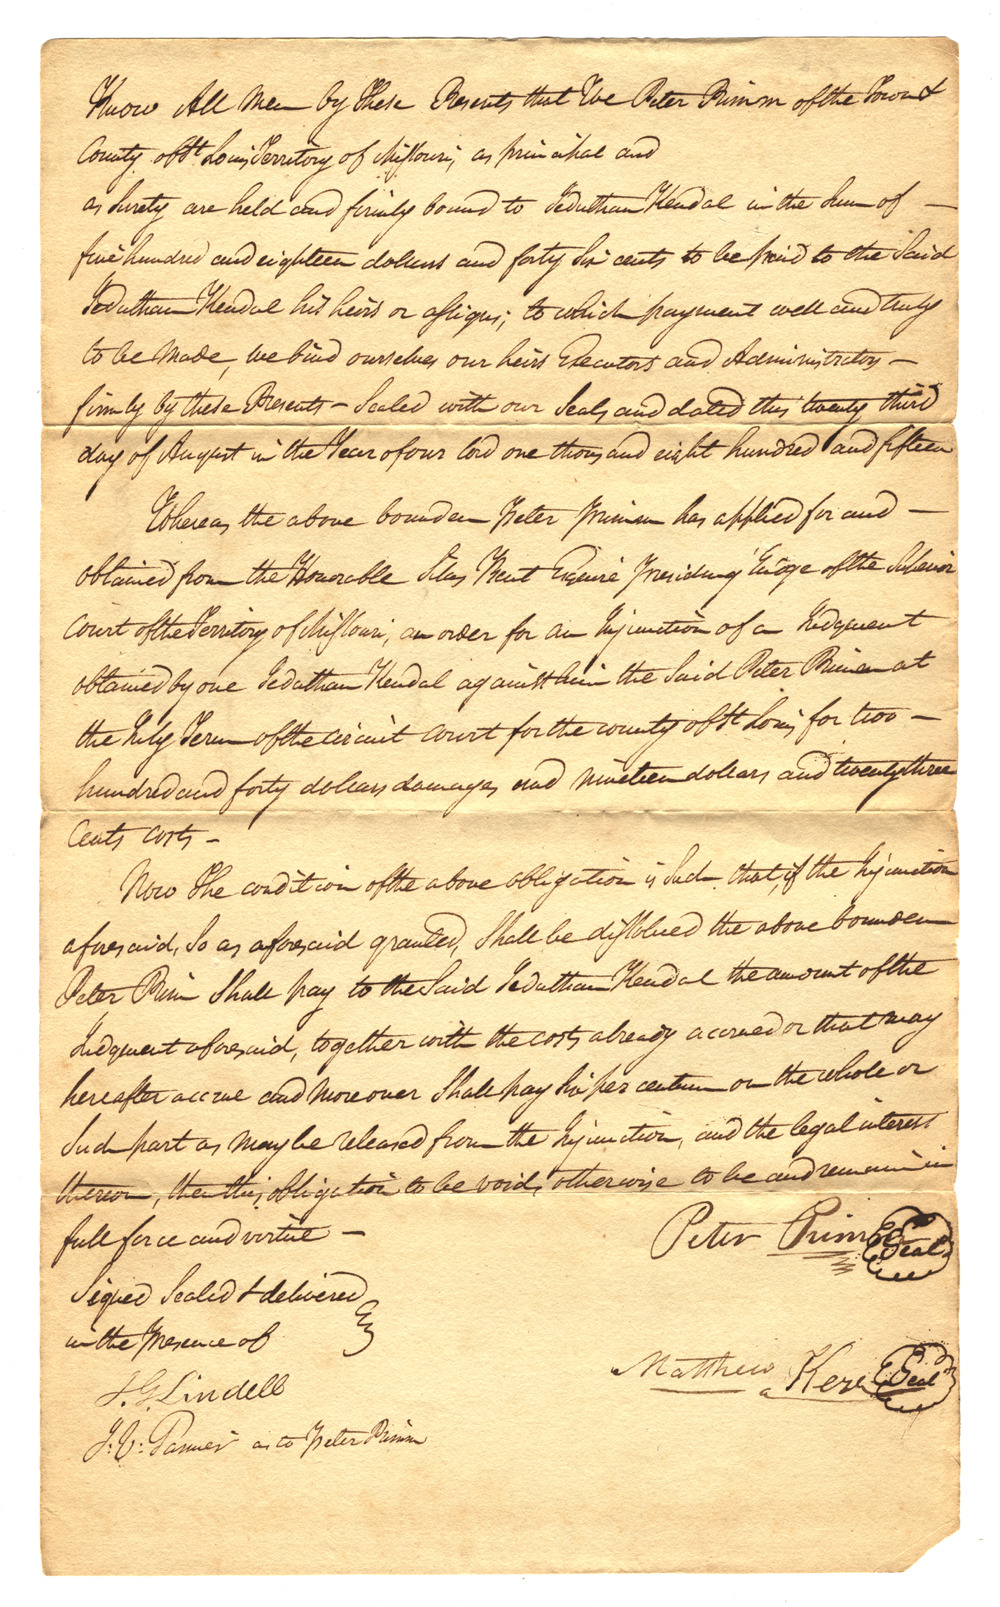 Know All Men by These Presents that We Peter Primm of the Town &
County of St Louis Territory of Missouri, as principal and
as Surety are held and firmly bound to Jeduthan Kendal in the Sum of —
five hundred and eighteen dollars and forty Six cents to be paid to the Said
Jeduthan Kendal his heirs or assigns; to which payment well and truly
to be Made, we bind ourselves our heirs Executors and Administrators —
firmly by these Presents — Sealed with our Seals and dated this twenty third
day of August in the Year of our lord one thousand eight hundred and fifteen
Whereas the above bounden Peter Primm has applied for and —
obtained from the Honorable Silas Bent Esquire Presiding Judge of the Superior
Court of the Territory of Missouri, an order for an Injunction of a Judgment
obtained by one Jeduthan Kendal against him the Said Peter Primm at
the July Term of the circuit Court for the county of St Louis for two —
hundred and forty dollars damages and nineteen dollars and twenty three
Cents costs —
Now The condition of the above obligation is Such that, if the Injunction
aforesaid, So as aforesaid granted, Shall be dissolved the above bounden
Peter Primm Shall pay to the Said Jeduthan Kendal the amount of the
Judgment aforesaid, together with the costs already accrued or that may
hereafter accrue and Moreover Shall pay Six per centum on the whole or
Such part as may be released from the Injunction, and the legal interest
thereon, then this obligation to be void, otherwise to be and remain in
full force and virtue —
Peter Primm Seal
Signed Sealed & delivered
in the Presence of
Matthew Kerr Seal
J. G. Lindell
J. V. Garnier as to Peter Primm